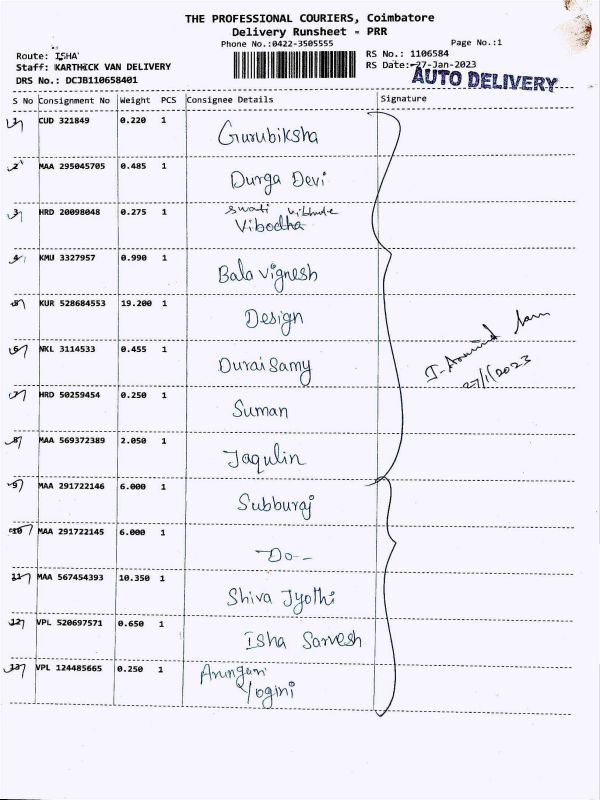 THE PROFESSIONAL COURIERS, Coimbatore
Delivery Runsheet - PRR
Phone No.:0422-3505555
Page No.:1
Route: ISHA
RS No.: 1106584
Staff: KARTHICK VAN DELIVERY
RS Date: 27-Jan-2023
DRS No.: DCJB110658401
AUTO DELIVERY
S No Consignment No Weight PCS Consignee Details Signature
1 CUD 321849 0.220 1 Gurubiksha
2 MAA 295045705 0.485 1 Durga Devi
3 HRD 20098048 0.275 1 swati vibhute
Vibodha
4 KMU 3327957 0.990 1 Bala Vignesh
5 KUR 528684553 19.200 1 Design
6 NKL 3114533 0.455 1 Duraisamy
7 HRD 50259454 0.250 1 Suman
8 MAA 569372389 2.050 1 Jaqulin
27/1/2023
9 MAA 291722146 6.000 1 Subburaj
10 MAA 291722145 6.000 1 -Do-
11 MAA 567454393 10.350 1 Shiva Jyothi
12 VPL 520697571 0.650 1 Isha Sarvesh
13 VPL 124485665 0.250 1
Yogini